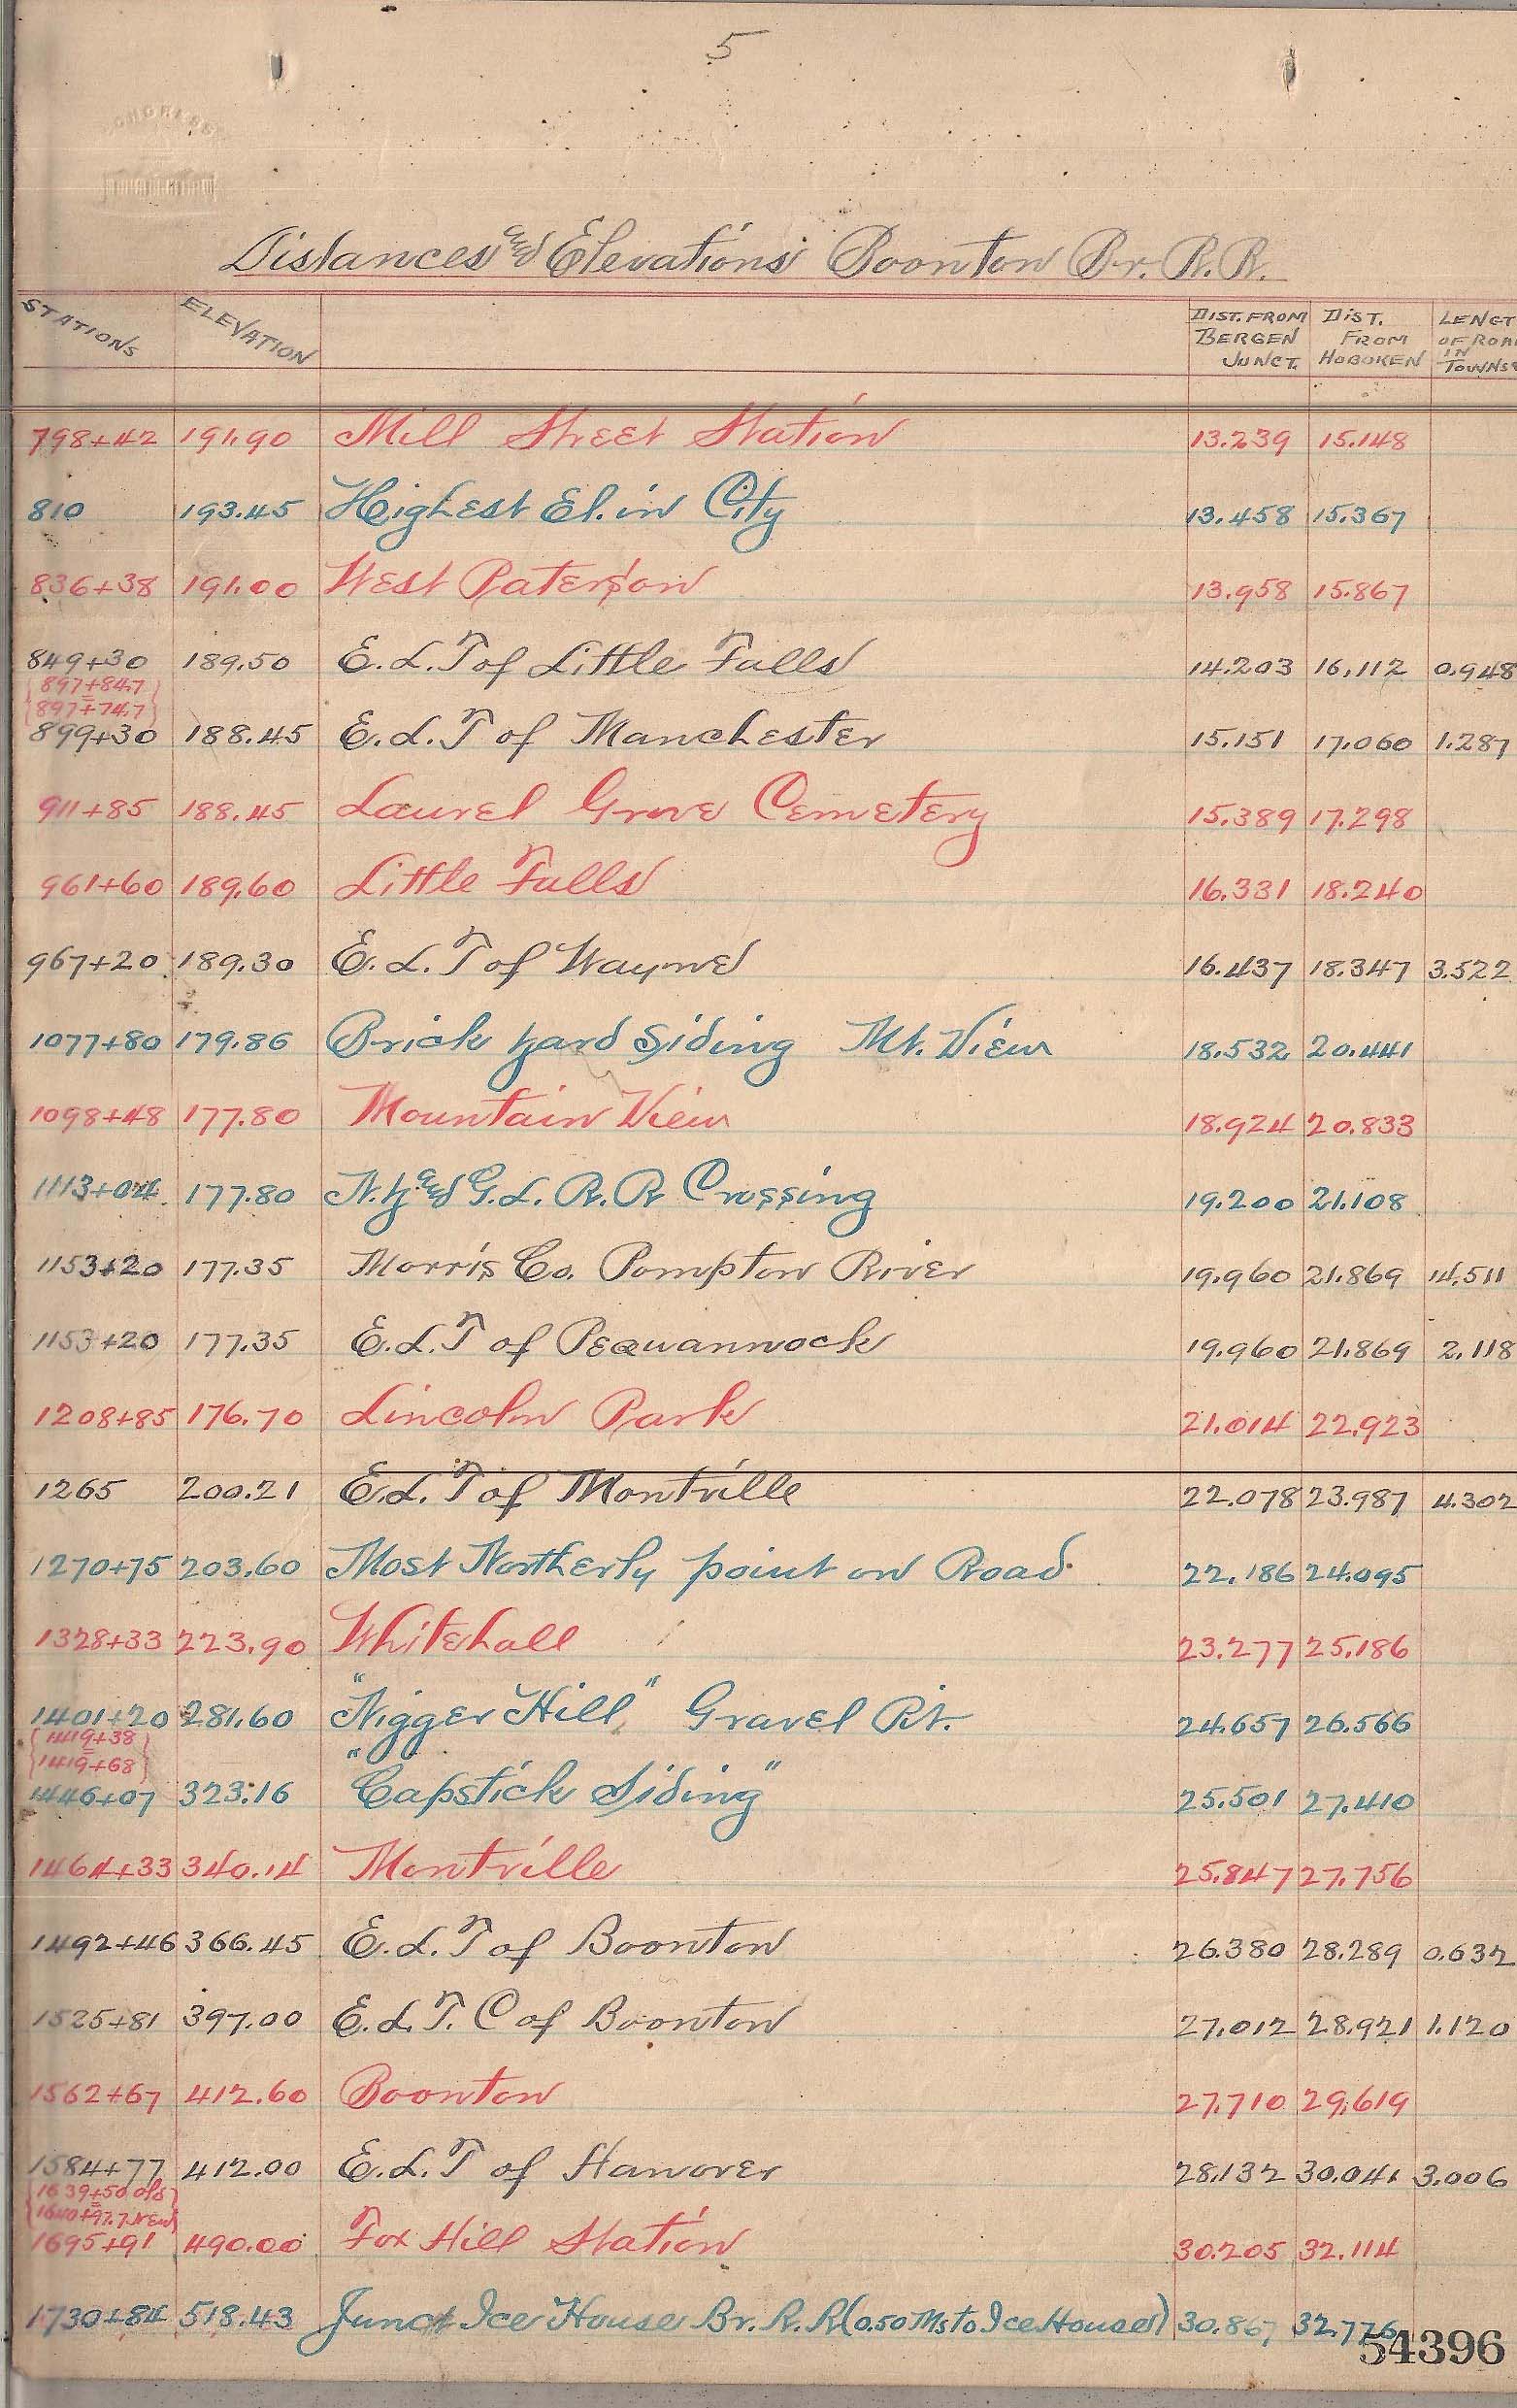 5
CONGRESS
Distances and Elevations Boonton Br. R.R.
STATIONS ELEVATION DIST. FROM BERGEN JUNCT. DIST. FROM HOBOKEN LENGT OF ROA IN TOWNS
798+42 191.90 Mill Street Station 13.239 15.148
810 193.45 Highest El. in City 13.458 15.367
836+38 191.00 West Paterson 13.958 15.867
849+30 189.50 E. L. T of Little Falls 14.203 16.112 0.948
{897+84.7 = 897+74.7}
899+30 188.45 E. L. T of Manchester 15.151 17.060 1.287
911+85 188.45 Laurel Grove Cemetery 15.389 17.298
961+60 189.60 Little Falls 16.331 18.240
967+20 189.30 E. L. T of Wayne 16.437 18.347 3.522
1077+80 179.86 Brick Yard Siding Mt. View 18.532 20.441
1098+48 177.80 Mountain View 18.924 20.833
1113+04 177.80 N.Y. and G. L. R. R Crossing 19.200 21.108
1153+20 177.35 Morris Co. Pompton River 19.960 21.869 14.511
1153+20 177.35 E. L. T of Pequannock 19.960 21.869 2.118
1208+85 176.70 Lincoln Park 21.014 22.923
1265 200.21 E. L. T of Montville 22.078 23.987 4.302
1270+75 203.60 Most Northerly point on Road. 22.186 24.095
1328+33 223.90 Whitehall 23.277 25.186
1401+20 281.60 "Nigger Hill" Gravel Pit. 24.657 26.566
{1419+38 = 1419+68}
1446+07 323.16 "Capstick Siding" 25.501 27.410
1464+33 340.14 Montville 25.847 27.756
1492+46 366.45 E. L. T of Boonton 26.380 28.289 0.632
1525+81 397.00 E. L. T. C of Boonton 27.012 28.921 1.120
1562+67 412.60 Boonton 27.710 29.619
1584+77 412.00 E. L. T of Hanover 28.132 30.041 3.006
{1639+50 old = 1640+97.7 New}
1695+91 490.00 Fox Hill Station 30.205 32.114
1730+84 518.43 Junct Ice House Br. R. R (0.50 Ms to Ice House) 30.867 32.776
54396